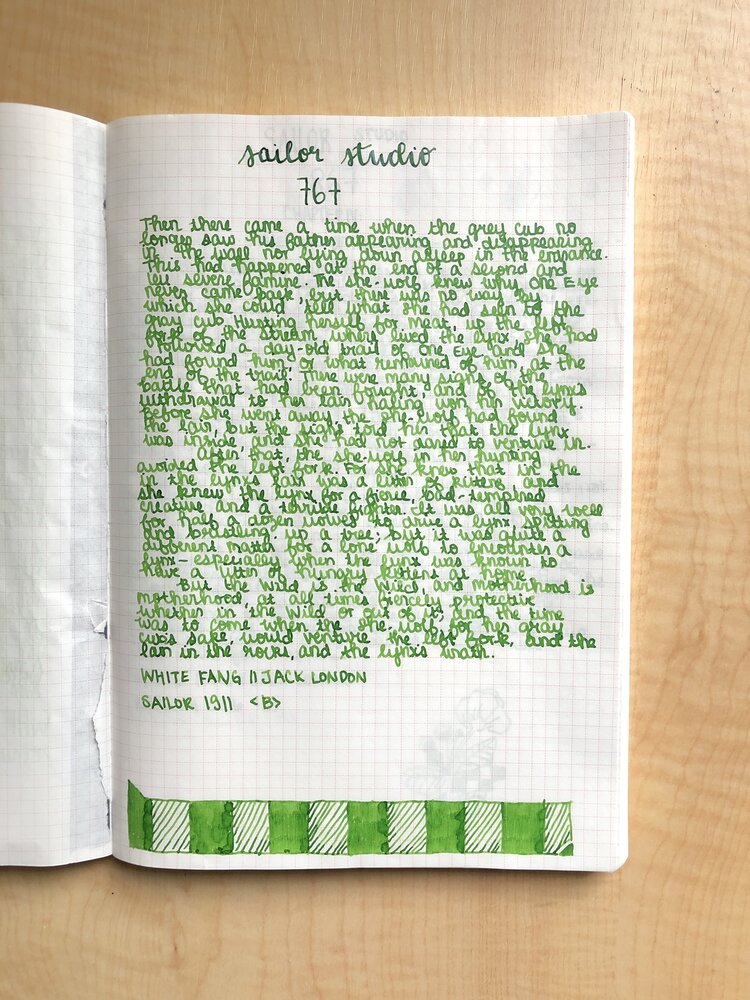 sailor studio
767
Then there came a time when the grey cub no
longer saw his father appearing and disappearing
in the wall nor lying down asleep in the entrance.
This had happened at the end of a second and
less severe famine. The she-wolf knew why One Eye
never came back, but there was no way by
which she could tell what she had seen to the
gray cub. Hunting herself for meat, up the left
fork of the stream where lived the lynx, she had
followed a day-old trail of One Eye. And she
had found him, or what remained of him, at the
end of the trail. There were many signs of the
battle that had been fought, and of the lynx's
withdrawal to her lair after having won the victory.
Before she went away, the she-wolf had found
the lair, but the signs told her that the lynx
was inside, and she had not dared to venture in.
After that, the she-wolf in her hunting
avoided the left fork. For she knew that in the
in the lynx's lair was a litter of kittens, and
she knew the lynx for a fierce, bad-tempered
creature and a terrible fighter. It was all very well
for half a dozen wolves to drive a lynx, spitting
and bristling, up a tree; but it was quite a
different matter for a lone wolf to encounter a
lynx-especially when the lynx was known to
have a litter of hungry kittens at home.
But the Wild is the Wild, and motherhood is
motherhood, at all times fiercely protective
whether in the Wild or out of it; and the time
was to come when the she-wolf, for her gray
cub's sake, would venture the left fork, and the
lair in the rocks, and the lynx's wrath.
WHITE FANG || JACK LONDON
SAILOR 1911 <B>